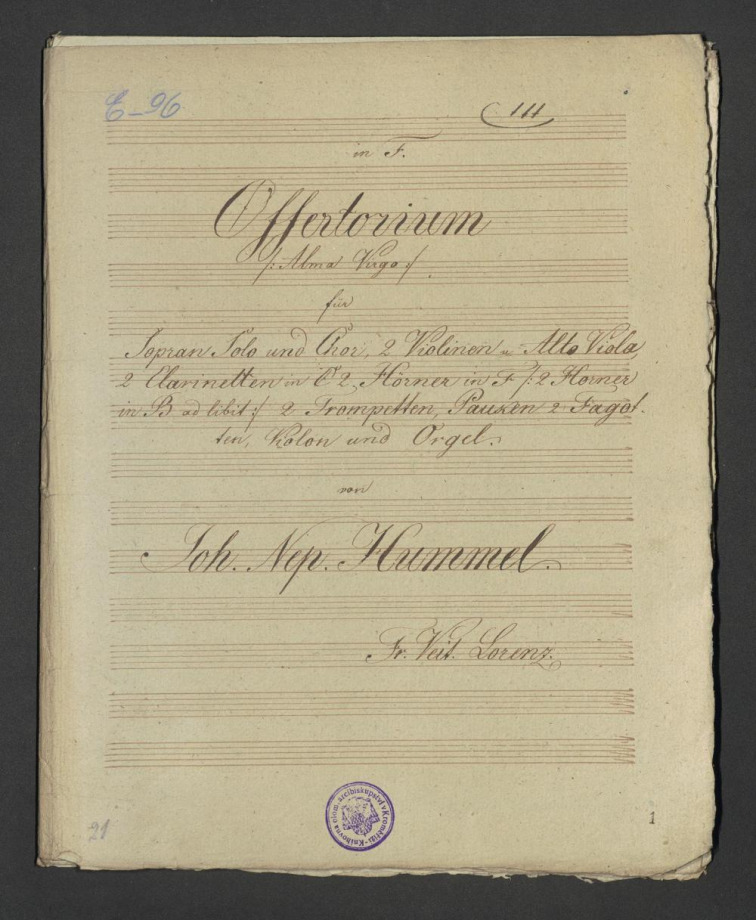 E-96
111
in F.
Offertorium
/: Alma Virgo :/
für
Sopran Solo und Chor, 2 Violinen u Alto Viola,
2 Clarinetten in C 2 Hörner in F /: 2 Horner
in B ad libit :/ 2 Trompetten, Pauken 2 Fagot-
ten, Violon und Orgel.
von
Joh. Nep. Hummel.
Fr. Veit. Lorenz.
Knihovna olom. arcibiskupství v Kroměříži
21
1